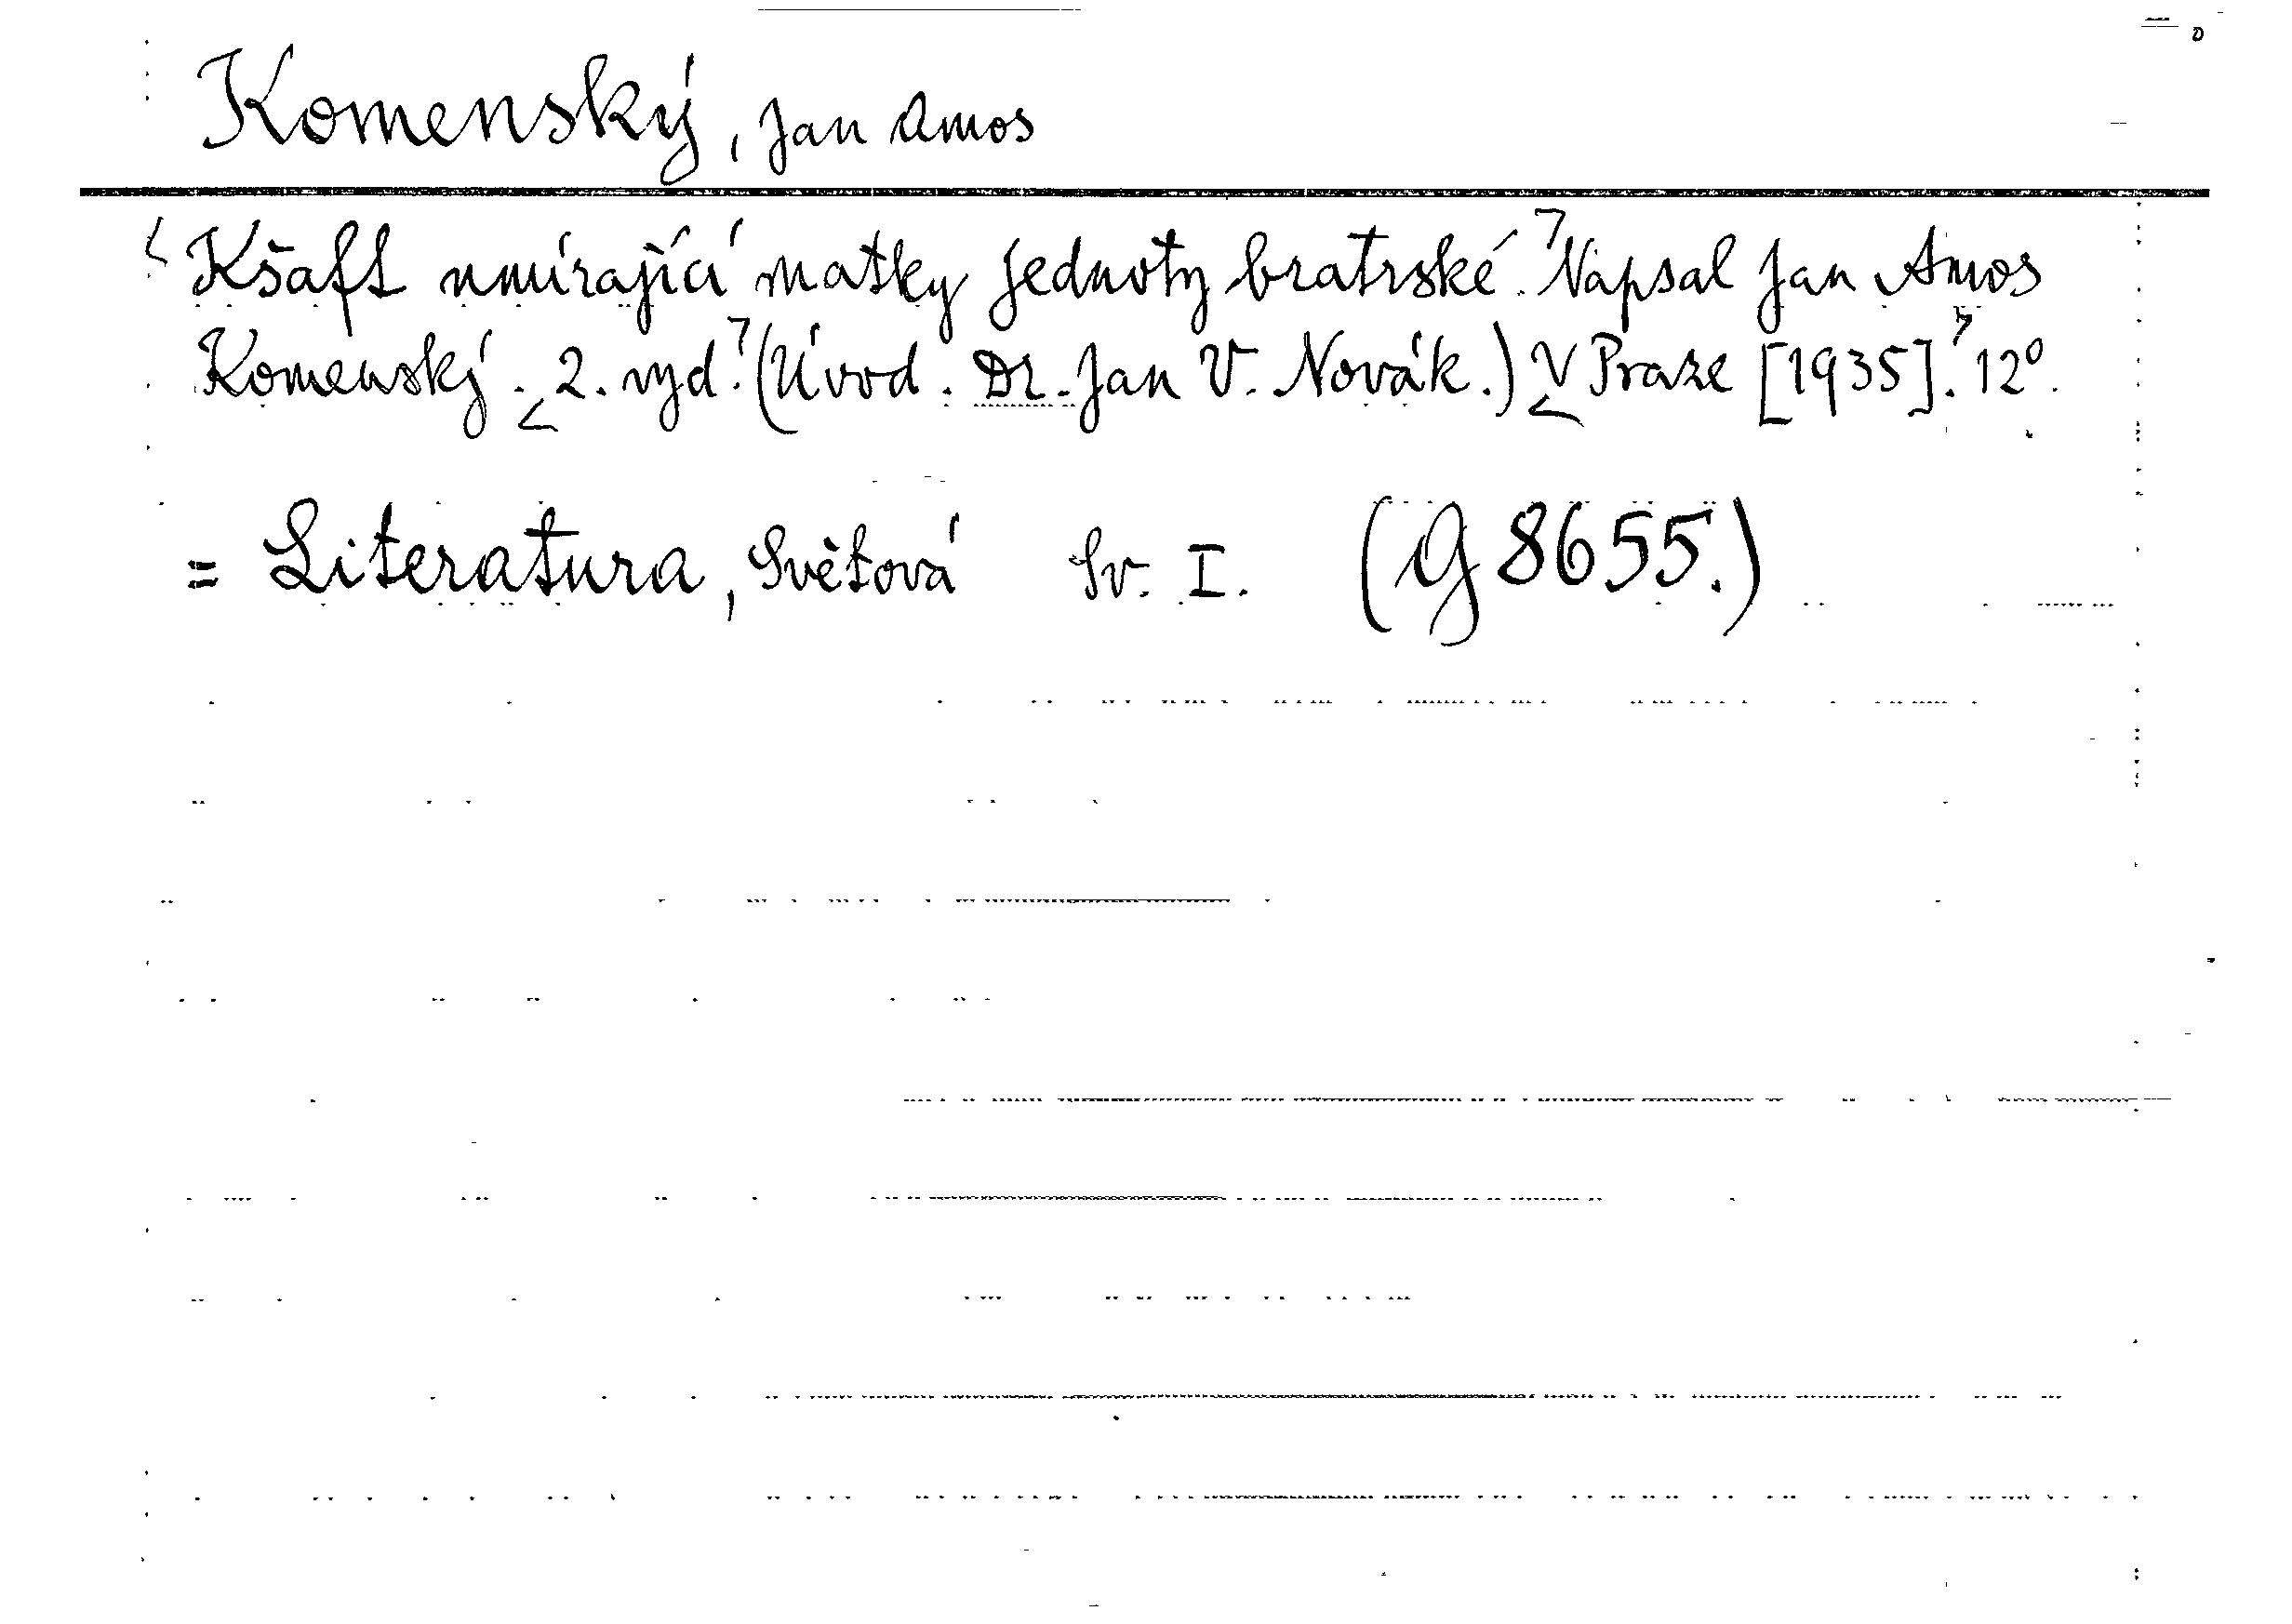 Komenský, Jan Amos
Kšaft umírající matky Jednoty bratrské. Napsal Jan Amos
Komenský. 2. vyd. (Úvod. Dr. Jan V. Novák.) V Praze [1935]. 12°.
= Literatura, Světová Sv. I. (G 8655.)